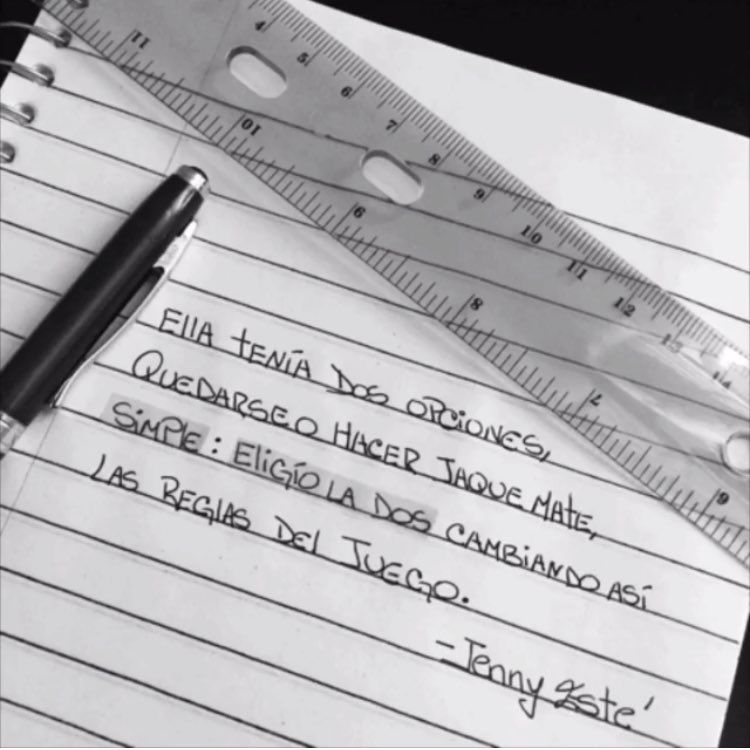 4 5 6 7 8 9 10 11 12 13 14
11 10 9 8 7 6
Ella tenía dos opciones,
Quedarse o hacer jaque mate,
Simple: Eligío la dos cambiando así
las reglas del juego.
-Jenny Esté